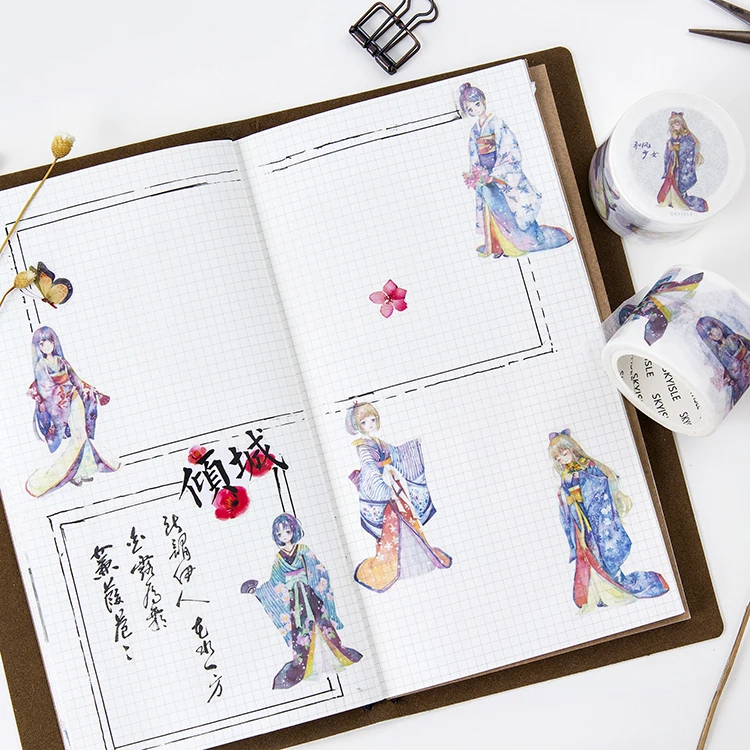 傾城
蒹葭蒼々
白露為霜
所謂伊人
在水一方
和风
少女
SKYISLE
SKYISLE
SKYISLE